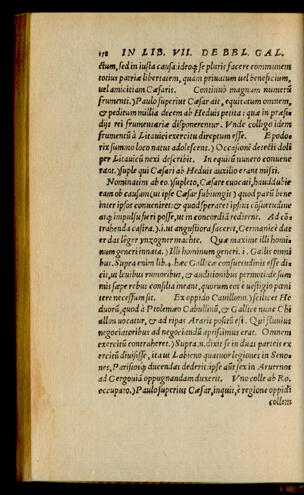 158 IN LIB. VII. DE BEL. GAL.
ctum, sed in iusta causa: ideoq; se pluris facere communem
totius patriæ libertatem, quàm priuatum uel beneficium,
uel amicitiam Cæsaris. Continuò magnum numerū
frumenti.) Paulo superius Cæsar ait, equitatum omnem,
& peditum millia decem ab Heduis petita: quæ in præsi=
dijs rei frumentariæ disponerentur. Vnde colligo idem
frumentū à Litauici exercitu direptum esse. E podo=
rix summo loco natus adolescens.) Occasionē detecti doli
per Litauicū nexi describit. In equitū numero conuene
rant.) suple qui Cæsari ab Heduis auxilio erant misi.
Nominatim ab eo.) supleto, Cæsare euocati, haud dubie
eam ob causam (ut ipse Cæsar subiungit) quod parū bene
inter ipsos conueniret: & quod speraret ipsius cōsuetudine
atq; impulsu fieri posse, ut in concordiā redirent. Ad cō=
trahenda castra.) i. ut angustiora facerit, Germanicè dat
er das leger ynzogner machte. Quæ maxime illi homi=
num generi innata.) Illi hominum generi. i. Gallis omni
bus. Supra enim lib. 4. hęc Gallicæ consuetudinis esse di=
cit, ut leuibus rumoribus, & auditionibus permoti: de sum
mis sæpe rebus consilia ineant, quorum eos è uestigio pœni
tere necessum sit. Ex oppido Cauillono.) scilicet He
duorū, quod à Ptolemæo Caballinū, & Gallicè nunc Chi
allon uocatur, & ad ripas Araris positū est. Qui fluuius
negociatoribus ad negociandū aptissimus erat. Omnem
exercitū contraheret.) Supra n. dixit se in duas partes ex
ercitū diuisisse, ita ut Labieno quatuor legiones in Seno=
nes, Parisiosq; ducendas dederit: ipse aūt sex in Aruernos
ad Gergouiā oppugnandam duxerit. Vno colle ab Ro.
occupato.) Paulo superius Cæsar, inquit, è regione oppidi
collem